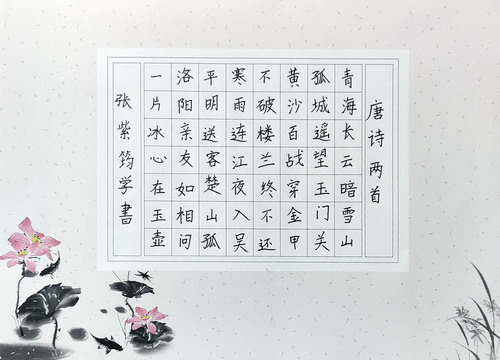 唐诗两首
青海长云暗雪山
孤城遥望玉门关
黄沙百战穿金甲
不破楼兰终不还
寒雨连江夜入吴
平明送客楚山孤
洛阳亲友如相问
一片冰心在玉壶
张紫筠学书